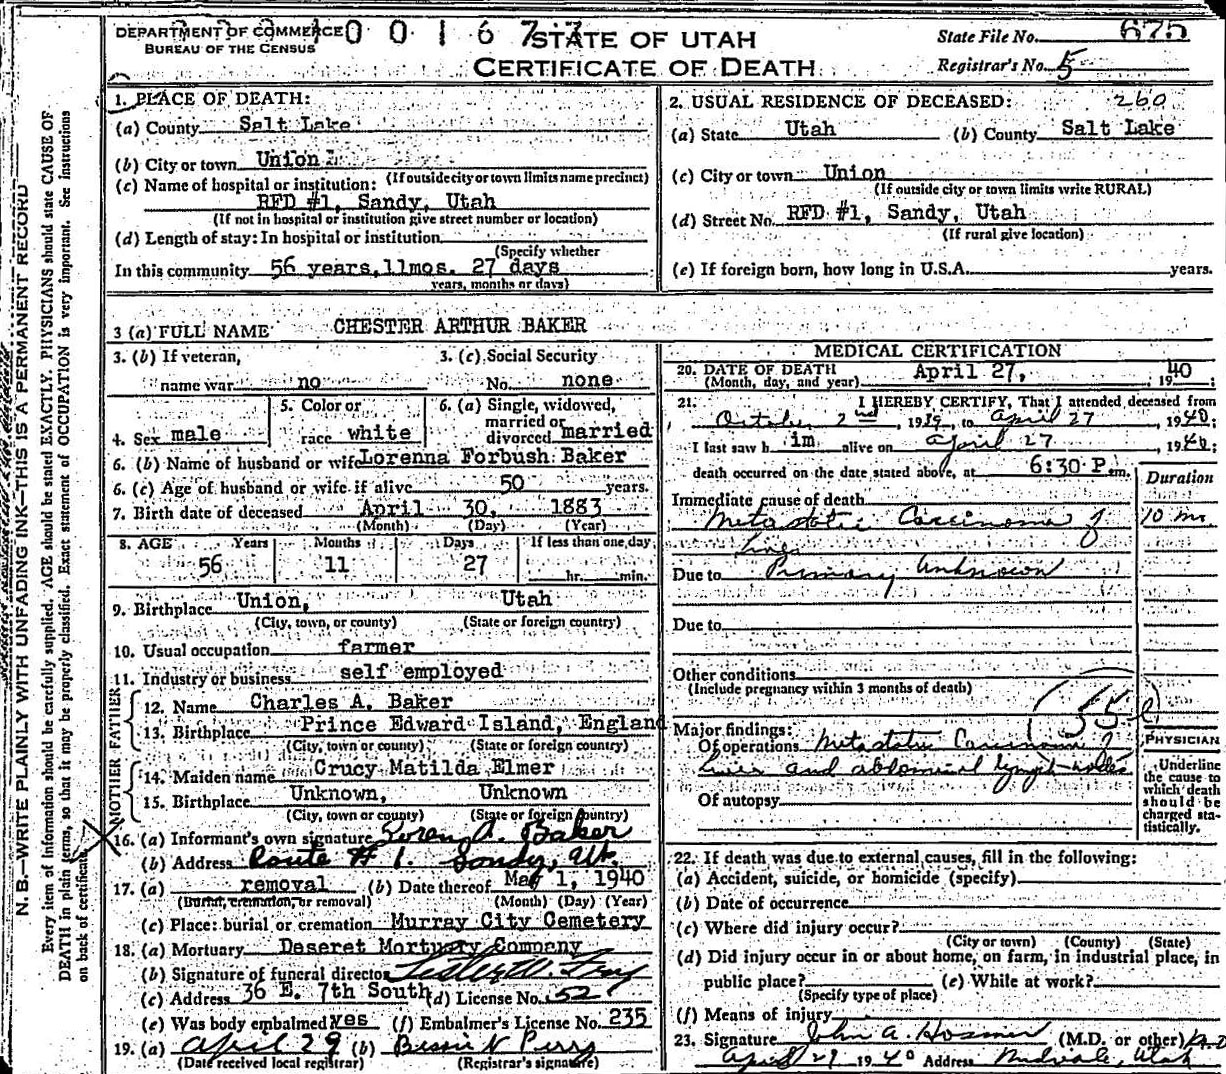 DEPARTMENT OF COMMERCE
BUREAU OF THE CENSUS
0 0 1 6 7
STATE OF UTAH
CERTIFICATE OF DEATH
State File No. 675
Registrar's No. 5
N. B.—WRITE PLAINLY WITH UNFADING INK—THIS IS A PERMANENT RECORD
Every item of information should be carefully supplied. AGE should be stated EXACTLY. PHYSICIANS should state CAUSE OF
DEATH in plain terms, so that it may be properly classified. Exact statement of OCCUPATION is very important. See instructions
on back of certificate.
1. PLACE OF DEATH:
(a) County Salt Lake
(b) City or town Union
(If outside city or town limits name precinct)
(c) Name of hospital or institution:
RFD #1, Sandy, Utah
(If not in hospital or institution give street number or location)
(d) Length of stay: In hospital or institution
(Specify whether
In this community 56 years, 11mos. 27 days
years, months or days)
2. USUAL RESIDENCE OF DECEASED: 260
(a) State Utah (b) County Salt Lake
(c) City or town Union
(If outside city or town limits write RURAL)
(d) Street No. RFD #1, Sandy, Utah
(If rural give location)
(e) If foreign born, how long in U.S.A. years.
3 (a) FULL NAME CHESTER ARTHUR BAKER
3. (b) If veteran, 3. (c) Social Security
name war no No. none
5. Color or 6. (a) Single, widowed,
married or
4. Sex male race white divorced married
6. (b) Name of husband or wife Lorenna Forbush Baker
6. (c) Age of husband or wife if alive 50 years.
7. Birth date of deceased April 30, 1883
(Month) (Day) (Year)
8. AGE Years Months Days If less than one day
56 11 27 hr. min.
9. Birthplace Union, Utah
(City, town, or county) (State or foreign country)
10. Usual occupation farmer
11. Industry or business self employed
FATHER
12. Name Charles A. Baker
13. Birthplace Prince Edward Island, England
(City, town or county) (State or foreign country)
MOTHER
14. Maiden name Crucy Matilda Elmer
15. Birthplace Unknown, Unknown
(City, town or county) (State or foreign country)
16. (a) Informant's own signature Loren A. Baker
(b) Address Route # 1. Sandy, Ut.
17. (a) removal (b) Date thereof May 1, 1940
(Burial, cremation, or removal) (Month) (Day) (Year)
(c) Place: burial or cremation Murray City Cemetery
18. (a) Mortuary Deseret Mortuary Company
(b) Signature of funeral director
(c) Address 36 E. 7th South (d) License No. 52
(e) Was body embalmed yes (f) Embalmer's License No. 235
19. (a) April 29 (b) Bessie N Perry
(Date received local registrar) (Registrar's signature)
MEDICAL CERTIFICATION
20. DATE OF DEATH April 27, 1940
(Month, day, and year)
21. I HEREBY CERTIFY, That I attended deceased from
October 2nd, 1939, to April 27, 1940,
I last saw him alive on April 27 1940;
death occurred on the date stated above, at 6:30 P.m.
Duration
Immediate cause of death
Metastatic Carcinoma of 10 mo.
Due to Primary Unknown
Due to
Other conditions
(Include pregnancy within 3 months of death)
55
Major findings:
Of operations Metastatic Carcinoma of
liver and abdominal lymph-nodes
Of autopsy
PHYSICIAN
Underline
the cause to
which death
should be
charged sta-
tistically.
22. If death was due to external causes, fill in the following:
(a) Accident, suicide, or homicide (specify)
(b) Date of occurrence
(c) Where did injury occur?
(City or town) (County) (State)
(d) Did injury occur in or about home, on farm, in industrial place, in
public place? (e) While at work?
(Specify type of place)
(f) Means of injury
23. Signature John A. Hosmer (M.D. or other) M.D
April 29 1940 Address Midvale, Utah